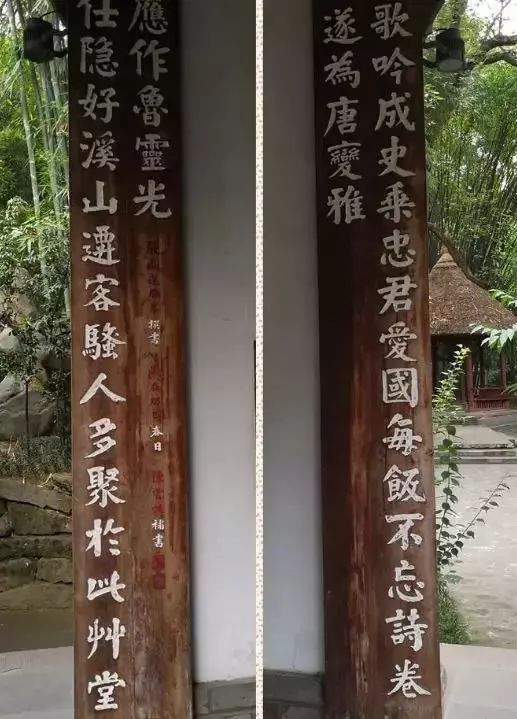 歌吟成史乘忠君愛國每飯不忘詩卷
遂為唐變雅
仕隱好溪山遷客騷人多聚於此艸堂
應作魯靈光
撰書
春日
補書